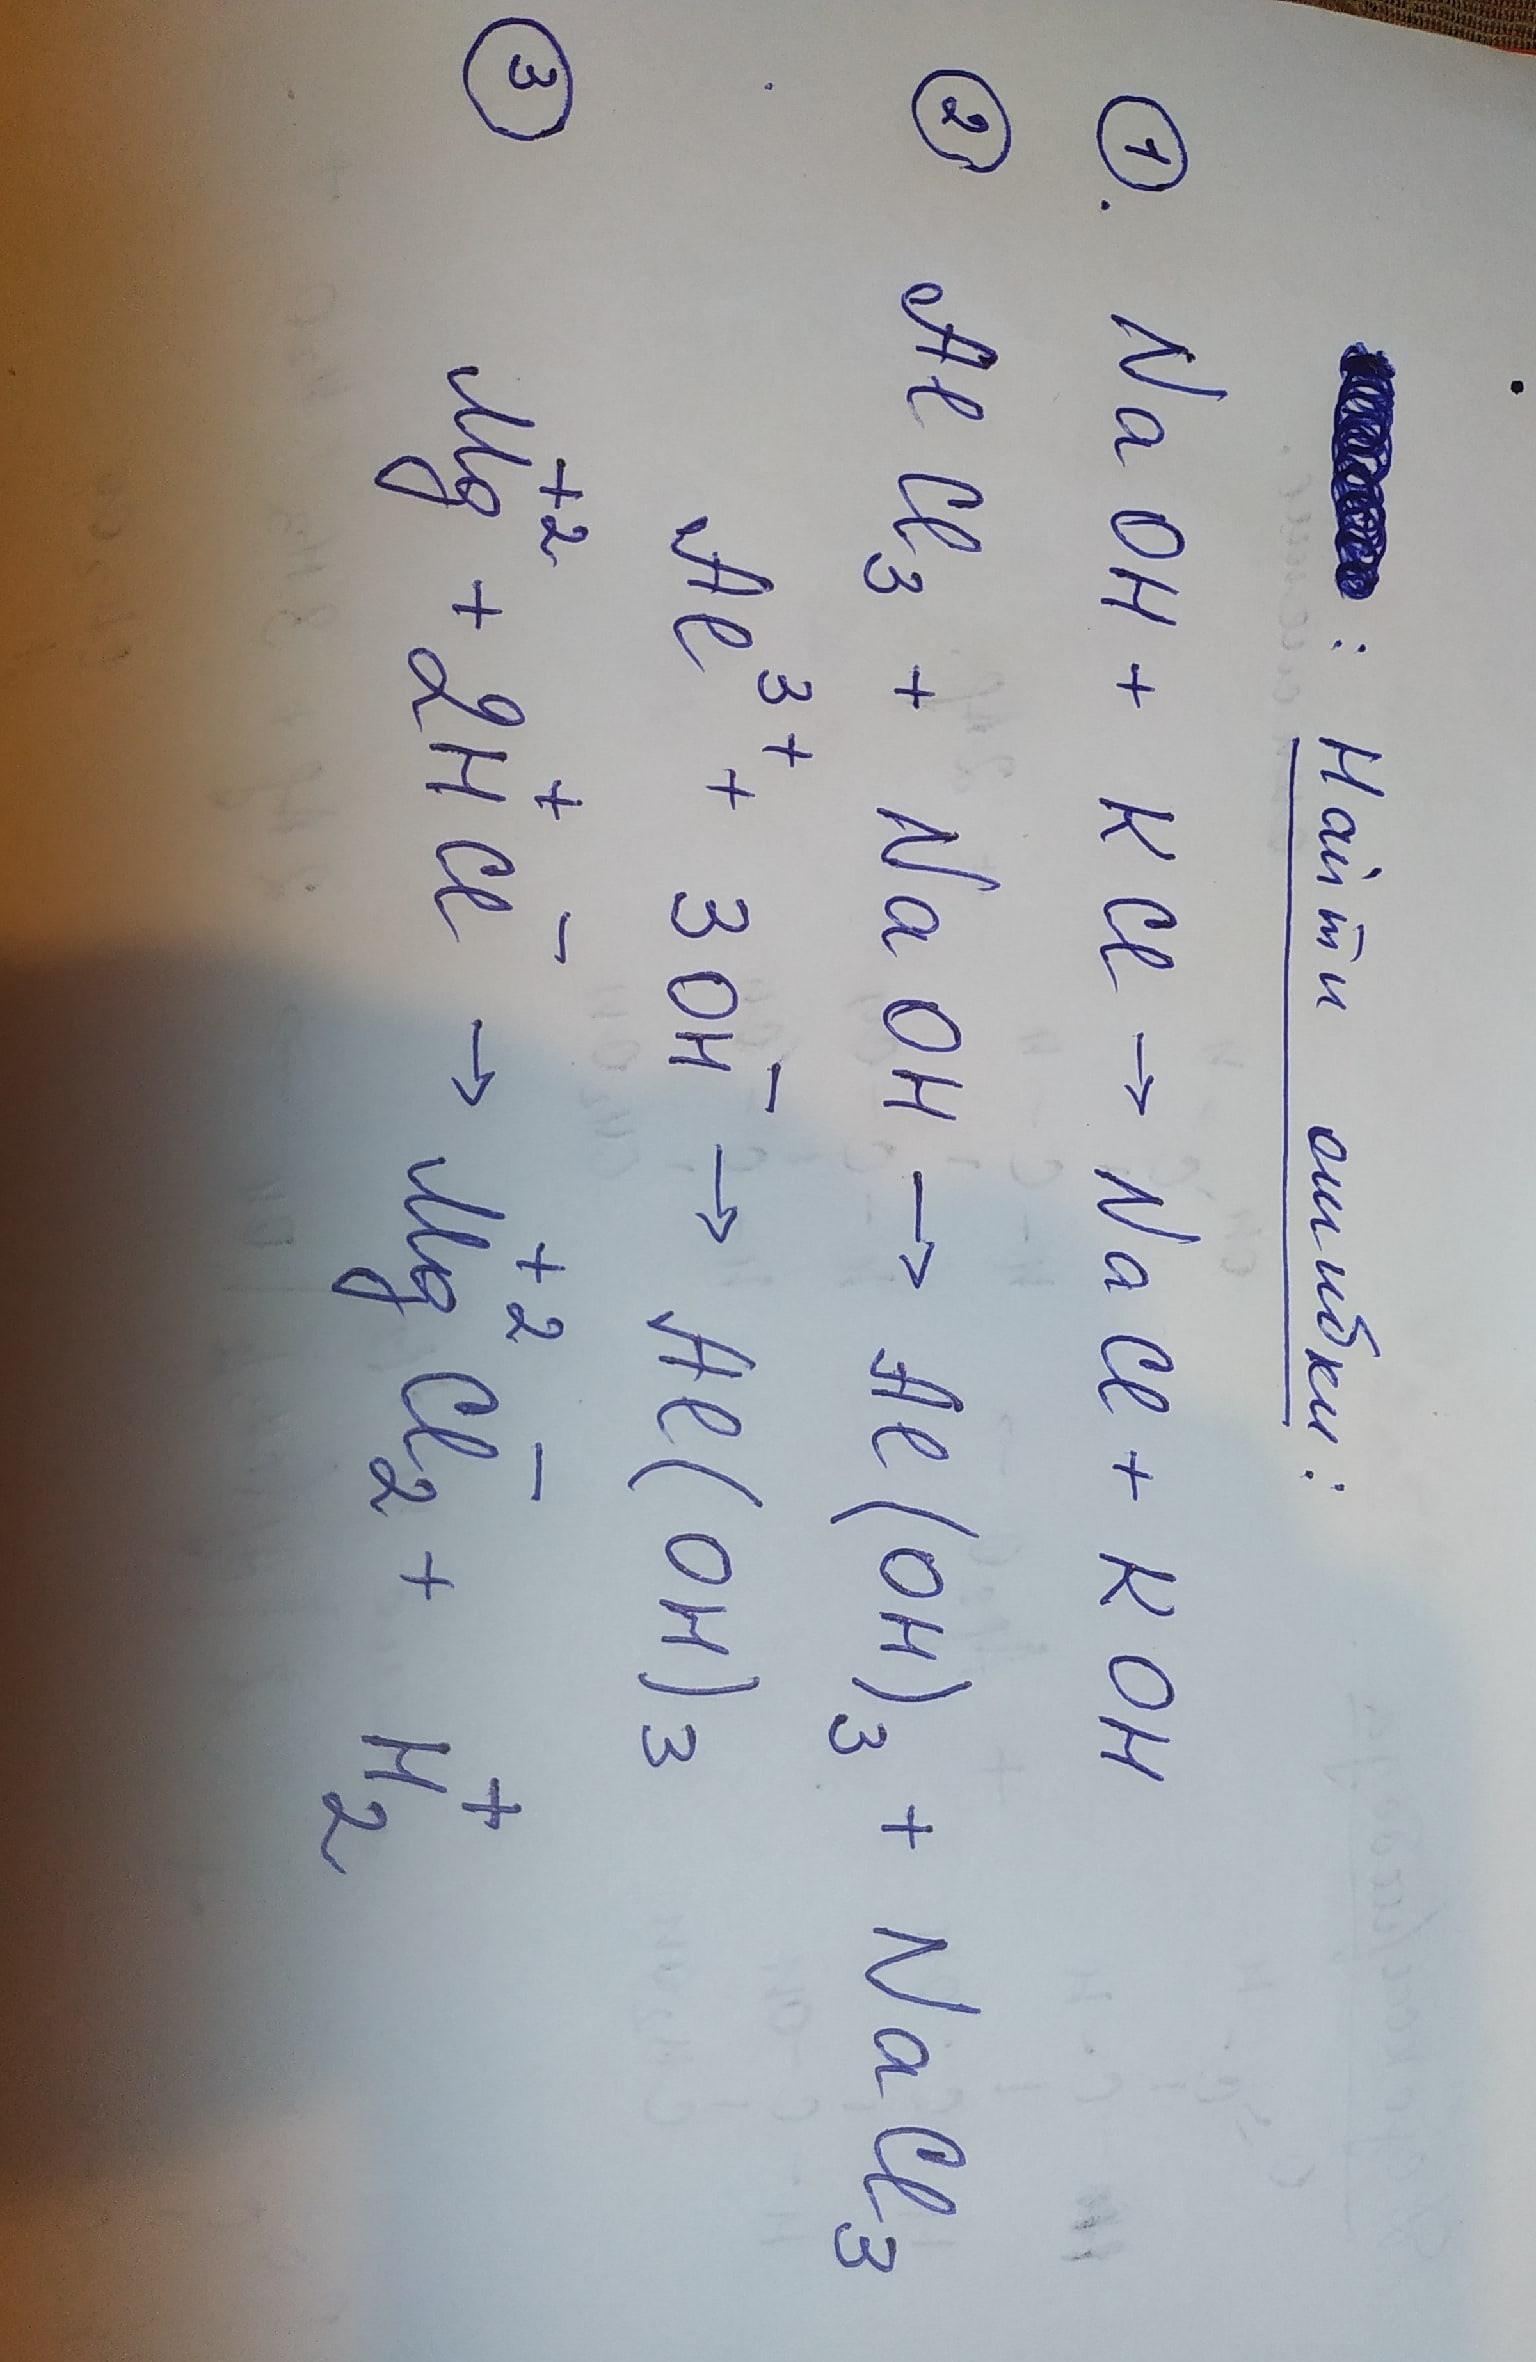 : Найти ошибки:
①. NaOH + KCl → NaCl + KOH
② AlCl₃ + NaOH → Al(OH)₃ + NaCl₃
Al³⁺ + 3OH⁻ → Al(OH)₃
③ Mg⁺² + 2H⁺Cl⁻ → Mg⁺²Cl⁻₂ + H⁺₂